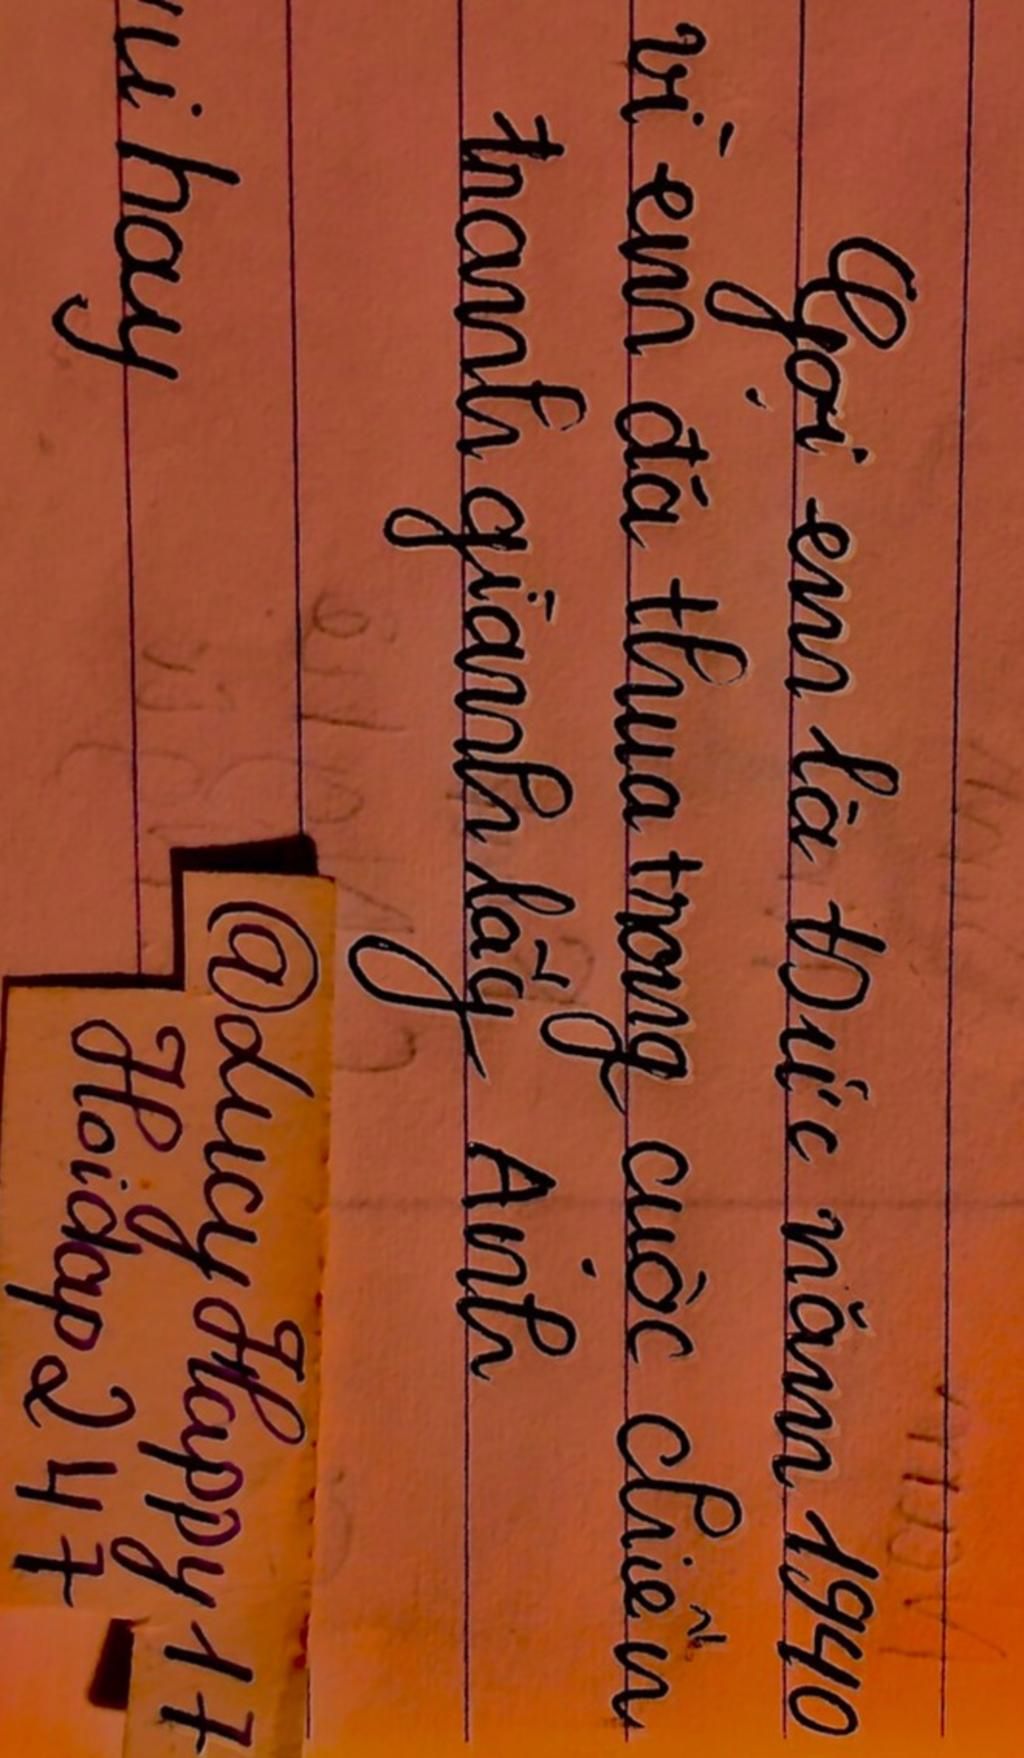 Gọi em là Đức năm 1940
vì em đã thua trong cuộc chiến
tranh giành lấy Ạnh
ui hay
@Lucy Happy 17
Hoidap 247